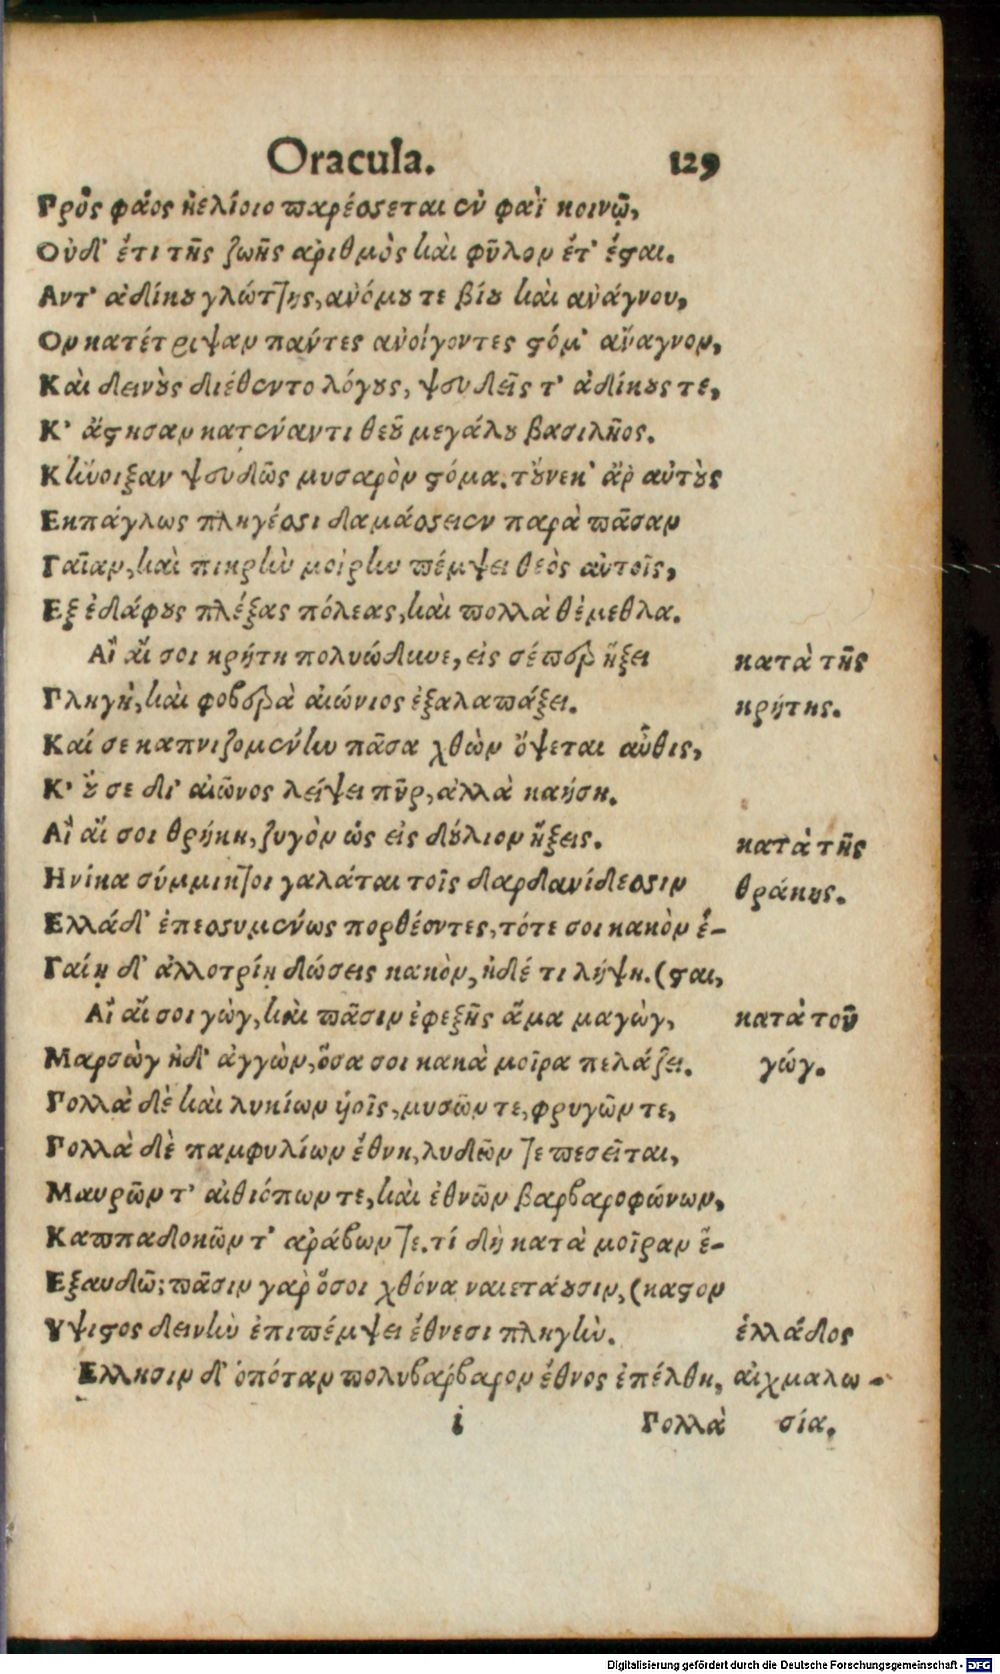 Oracula. 129
Πρὸς φάος ἠελίοιο παρέσσεται ἐν φαῒ κοινῷ,
Οὐδ' ἔτι τῆς ζωῆς ἀριθμὸς καὶ φῦλον ἔτ' ἔσται.
Αντ' ἀδίκου γλώττης, ἀνόμου τε βίου καὶ ἀνάγνου,
Ον κατέτριψαν πάντες ἀνοίγοντες στόμ' ἄναγνον,
Καὶ δεινοὺς διέθεντο λόγους, ψευδεῖς τ' ἀδίκους τε,
Κ' ἄστησαν κατέναντι θεοῦ μεγάλου βασιλῆος.
Κἤνοιξαν ψευδῶς μυσαρὸν στόμα. τοὔνεκ' ἂρ αὐτοὺς
Εκπάγλως πληγέσσι δαμάσσειεν παρὰ πᾶσαν
Γαῖαν, καὶ πικρὴν μοίρην πέμψει θεὸς αὐτοῖς,
Εξ ἐδάφους πλέξας πόλεας, καὶ πολλὰ θέμεθλα.
Αἴ αἴ σοι κρήτη πολυώδυνε, εἰς σέπερ ἥξει
κατὰ τῆς
Πληγὴ, καὶ φοβερὰ αἰώνιος ἐξαλαπάξει.
κρήτης.
Καί σε καπνιζομένην πᾶσα χθὼν ὄψεται αὖθις,
Κ' οὔ σε δι' αἰῶνος λείψει πῦρ, ἀλλὰ καήσῃ.
Αἴ αἴ σοι θρήκη, ζυγὸν ὡς εἰς δούλιον ἥξεις.
κατὰ τῆς
Ηνίκα σύμμικτοι γαλάται τοῖς δαρδανίδεσσιν
θράκης.
Ελλάδ' ἐπεσσυμένως πορθέοντες, τότε σοι κακὸν ἔ-
Γαίῃ δ' ἀλλοτρίῃ δώσεις κακὸν, ἠδέ τι λήψῃ. (σται,
Αἴ αἴ σοι γὼγ, καὶ πᾶσιν ἐφεξῆς ἅμα μαγὼγ,
κατὰ τοῦ
Μαρσὼγ ἠδ' ἀγγὼν, ὅσα σοι κακὰ μοῖρα πελάζει.
γώγ.
Πολλὰ δὲ καὶ λυκίων υἱοῖς, μυσῶν τε, φρυγῶν τε,
Πολλὰ δὲ παμφυλίων ἔθνη, λυδῶν τε πεσεῖται,
Μαυρῶν τ' αἰθιόπων τε, καὶ ἐθνῶν βαρβαροφώνων,
Καππαδοκῶν τ' ἀράβων τε. τί δὴ κατὰ μοῖραν ἕ-
Εξαυδῶ; πᾶσιν γὰρ ὅσοι χθόνα ναιετάουσιν, (καστον
Υψιστος δεινὴν ἐπιπέμψει ἔθνεσι πληγήν.
ἑλλάδος
Ελλησιν δ' ὁπόταν πολυβάρβαρον ἔθνος ἐπέλθῃ,
αἰχμαλω-
i Πολλὰ
σία.
Digitalisierung gefördert durch die Deutsche Forschungsgemeinschaft - DFG